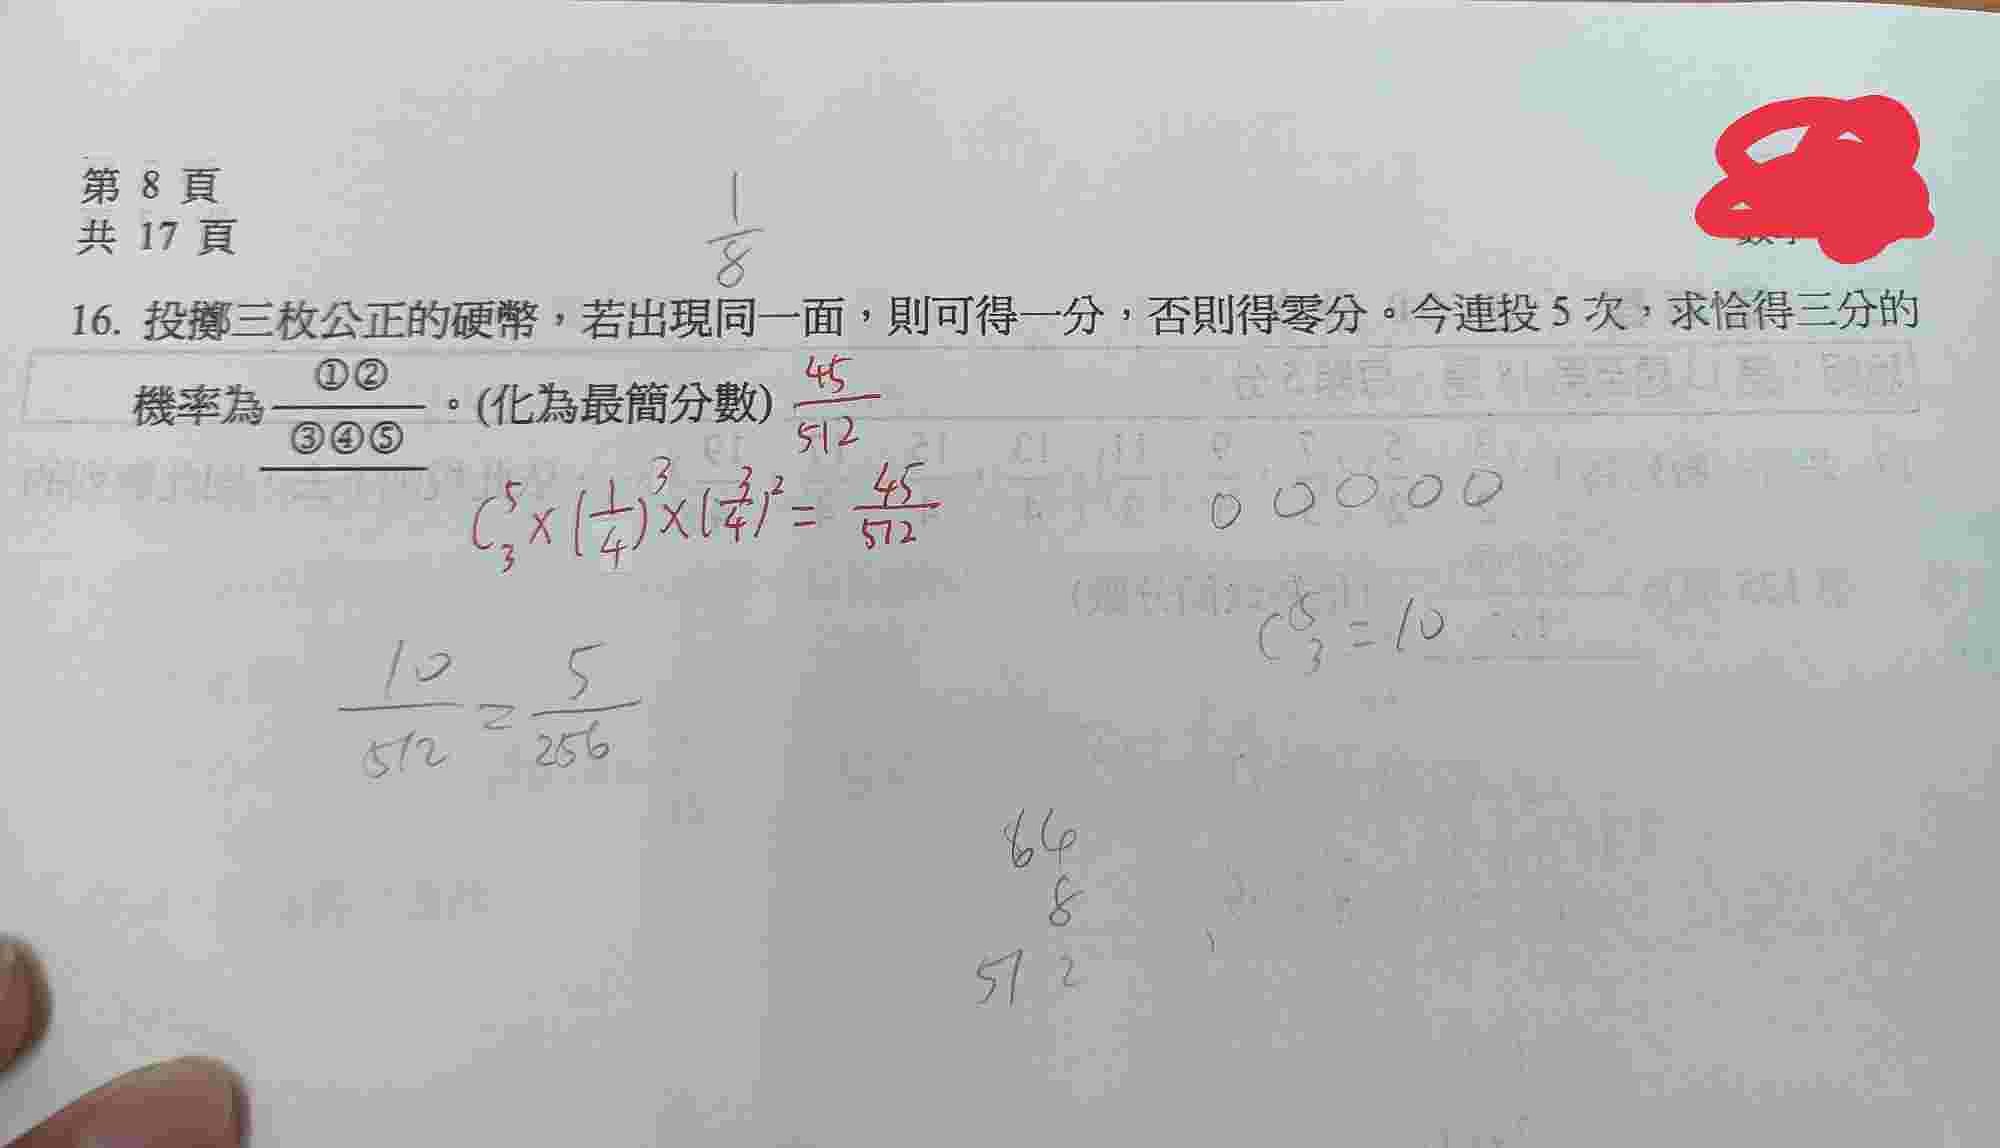 第 8 頁
共 17 頁
1/8
16. 投擲三枚公正的硬幣，若出現同一面，則可得一分，否則得零分。今連投 5 次，求恰得三分的
機率為 ①②/③④⑤ 。(化為最簡分數) 45/512
C⁵₃ × (1/4)³ × (3/4)² = 45/512
0 0 0 0 0
C⁵₃ = 10
10/512 = 5/256
64
8
512